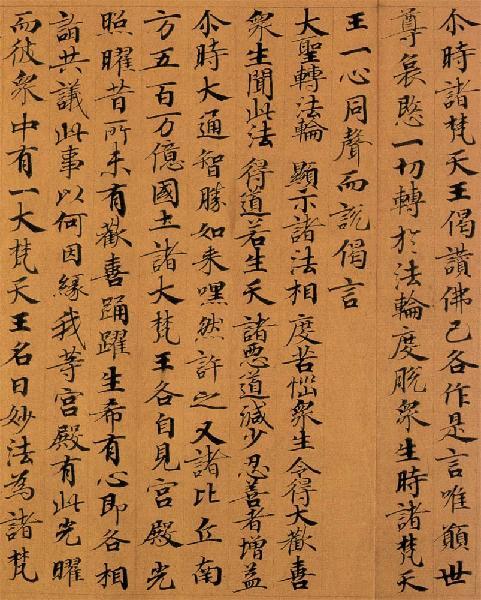 尒時諸梵天王偈讃佛已各作是言唯願世
尊哀愍一切轉於法輪度脱衆生時諸梵天
王一心同聲而説偈言
大聖轉法輪　顯示諸法相　度苦惱衆生　令得大歡喜
衆生聞此法　得道若生天　諸惡道減少　忍善者增益
尒時大通智勝如来嘿然許之又諸比丘南
方五百万億國土諸大梵王各自見宮殿光
照曜昔所未有歡喜踊躍生希有心即各相
詣共議此事以何因緣我等宮殿有此光曜
而彼衆中有一大梵天王名曰妙法為諸梵